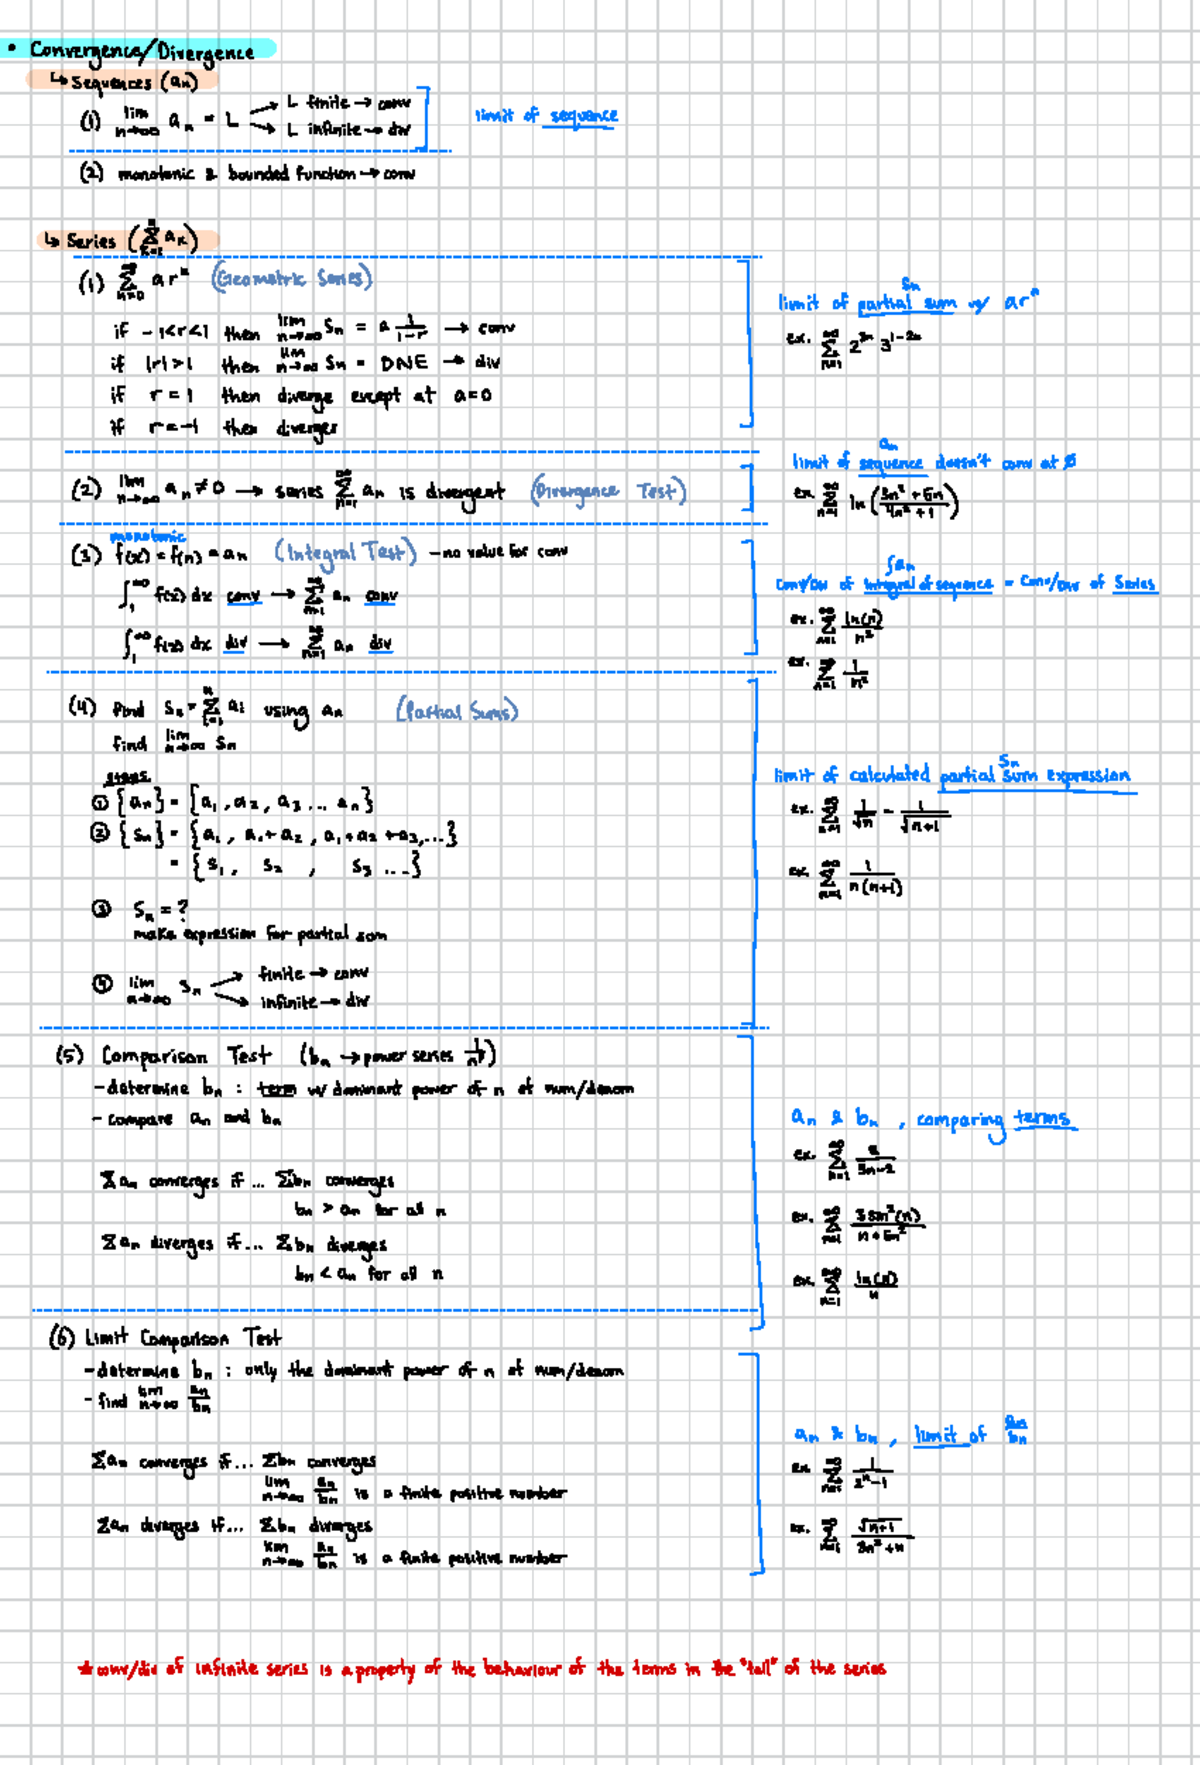 • Convergence/Divergence
↳ Sequences (aₙ)
(1) lim n→∞ aₙ = L → L finite → conv
→ L infinite → div
limit of sequence
(2) monotonic & bounded function → conv
↳ Series (∑ aₙ)
(1) ∑ n=0 ∞ arⁿ (Geometric Series)
if -1<r<1 then lim n→∞ Sₙ = a 1/(1-r) → conv
if |r|>1 then lim n→∞ Sₙ = DNE → div
if r=1 then diverge except at a=0
if r=-1 then diverges
Sₙ
limit of partial sum w/ arⁿ
ex. ∑ n=1 ∞ 2³ⁿ 3¹⁻²ⁿ
(2) lim n→∞ aₙ ≠ 0 → series ∑ n=1 ∞ aₙ is divergent (Divergence Test)
aₙ
limit of sequence doesn't conv at 0
ex. ∑ n=1 ∞ ln
monotonic
(3) f(x) = f(n) = aₙ (Integral Test) - no value for conv
∫₁^∞ f(x) dx conv → ∑ n=1 ∞ aₙ conv
∫₁^∞ f(x) dx div → ∑ n=1 ∞ aₙ div
∫aₙ
Conv/Div of integral of sequence = Conv/Div of Series
ex. ∑ n=1 ∞ ln(n)/n²
ex. ∑ n=1 ∞
(4) find Sₙ = ∑ i=1 n aᵢ using aₙ (Partial Sums)
find lim n→∞ Sₙ
steps.
① {aₙ} = {a₁, a₂, a₃ ... aₙ}
② {Sₙ} = {a₁, a₁+a₂, a₁+a₂+a₃,...}
= {S₁, S₂, S₃ ...}
③ Sₙ = ?
make expression for partial sum
④ lim n→∞ Sₙ → finite → conv
→ infinite → div
Sₙ
limit of calculated partial sum expression
ex. ∑ n=1 ∞ 1/√n - 1/√(n+1)
ex. ∑ n=1 ∞ 1/(n(n+1))
(5) Comparison Test (bₙ → power series 1/nᵖ)
- determine bₙ : term w/ dominant power of n of num/denom
- compare aₙ and bₙ
∑aₙ converges if... ∑bₙ converges
bₙ > aₙ for all n
∑aₙ diverges if... ∑bₙ diverges
bₙ < aₙ for all n
aₙ & bₙ, comparing terms
ex. ∑ n=1 ∞
ex. ∑ n=1 ∞
ex. ∑ n=1 ∞ ln(n)/n
(6) Limit Comparison Test
- determine bₙ : only the dominant power of n of num/denom
- find lim n→∞ aₙ/bₙ
∑aₙ converges if... ∑bₙ converges
lim n→∞ aₙ/bₙ is a finite positive number
∑aₙ diverges if... ∑bₙ diverges
lim n→∞ aₙ/bₙ is a finite positive number
aₙ & bₙ, limit of aₙ/bₙ
ex. ∑ n=1 ∞ 1/(2ⁿ-1)
ex. ∑ n=1 ∞
★ conv/div of infinite series is a property of the behaviour of the terms in the "tail" of the series